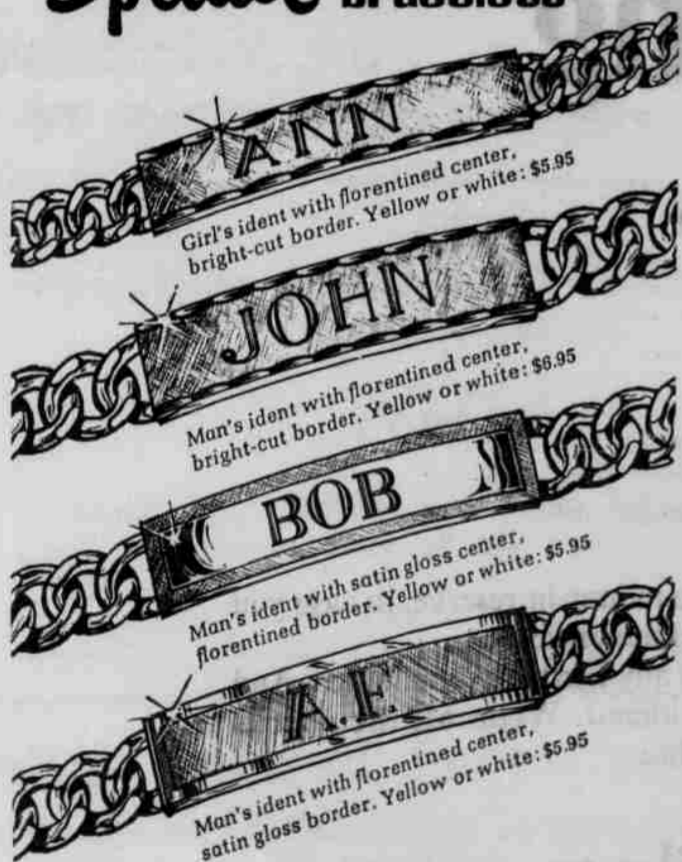 bracelets
ANN
Girl's ident with florentined center,
bright-cut border. Yellow or white: $5.95
JOHN
Man's ident with florentined center,
bright-cut border. Yellow or white: $6.95
BOB
Man's ident with satin gloss center,
florentined border. Yellow or white: $5.95
A.F.
Man's ident with florentined center,
satin gloss border. Yellow or white: $5.95